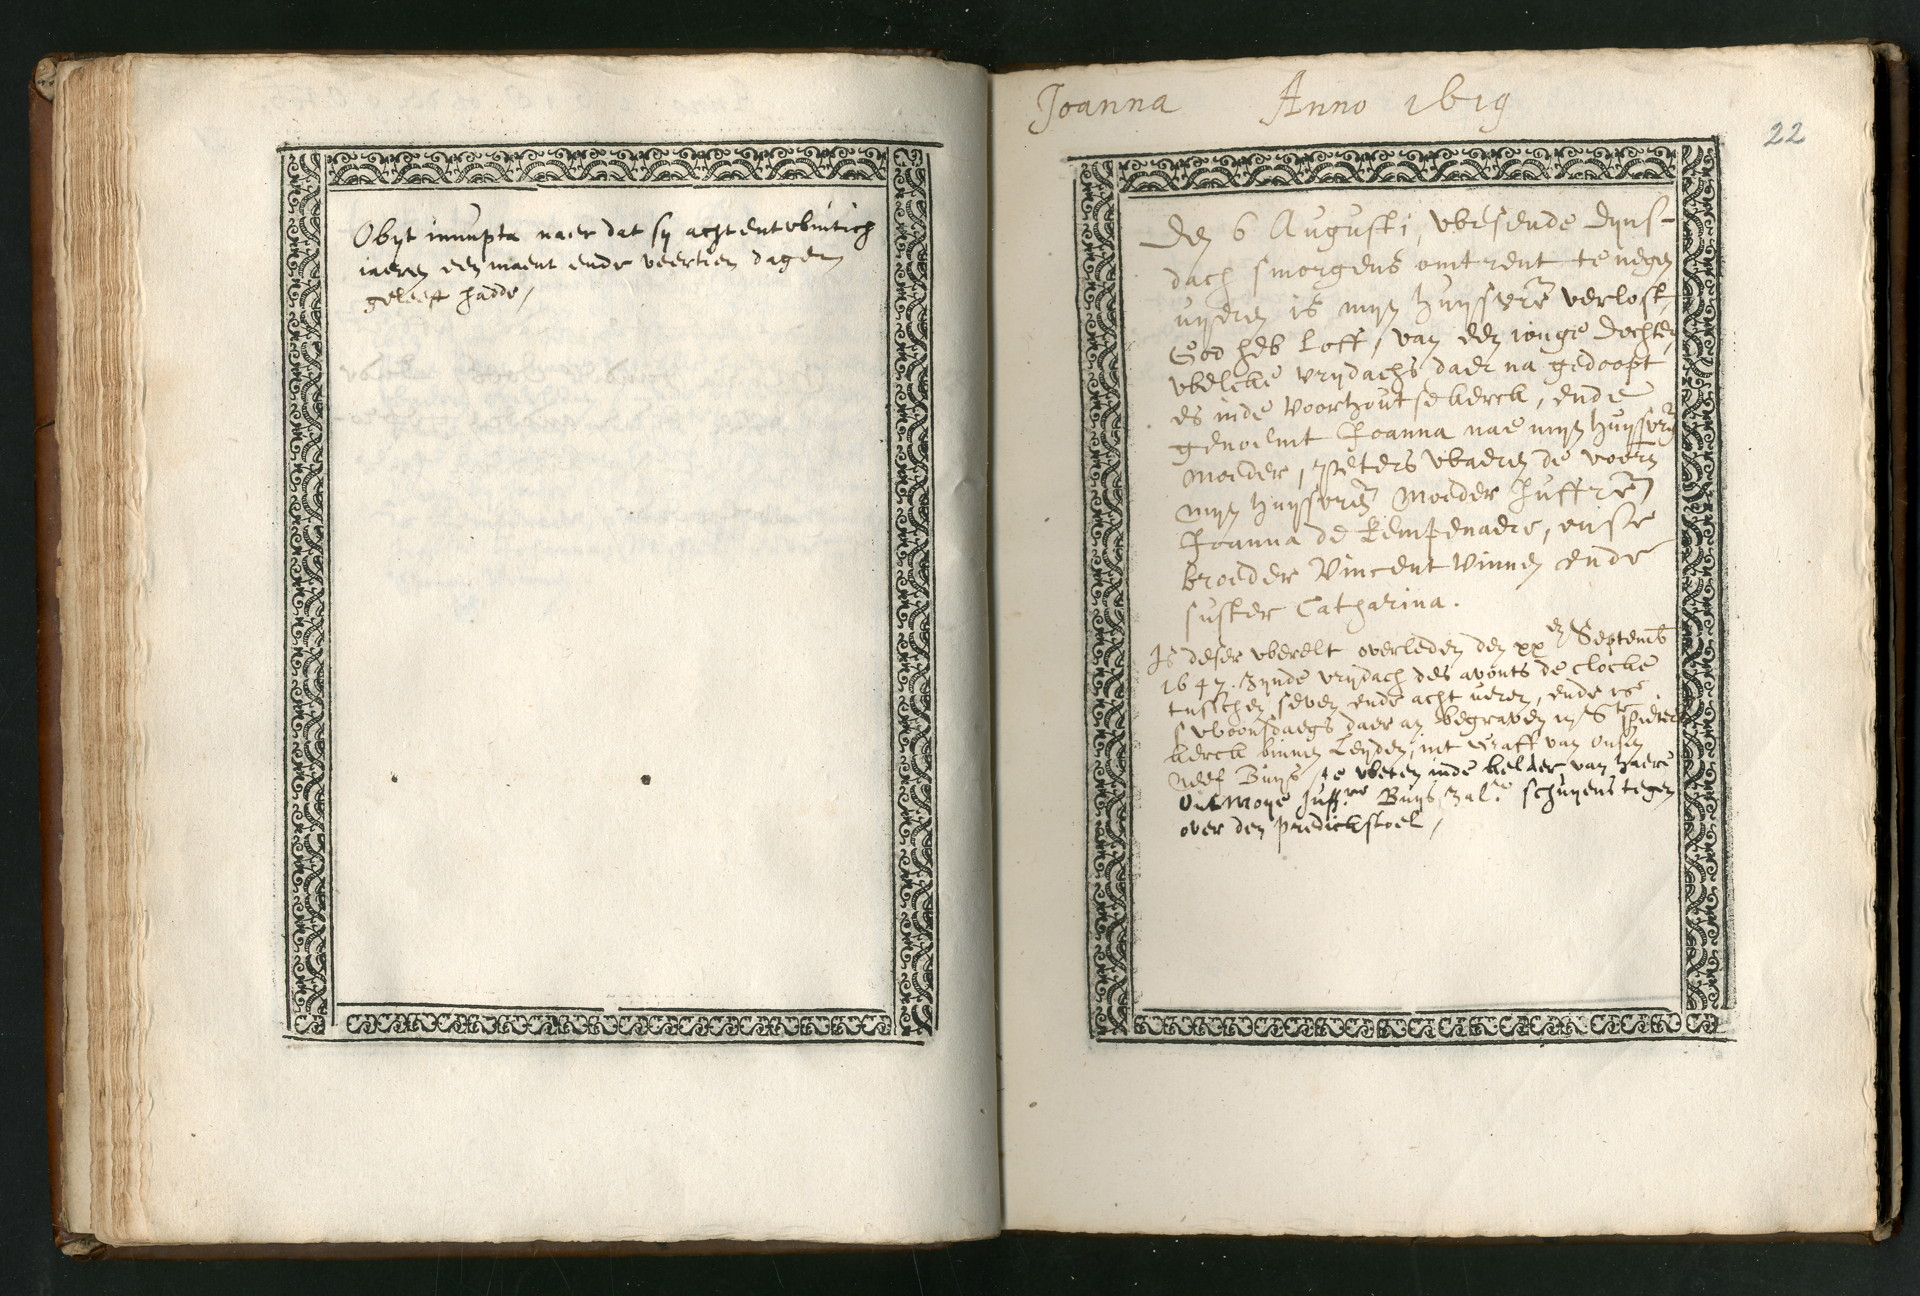 Obyt innupta naer dat sy achtentwintich
iaeren een maent ende veertien dagen
geleeft hadde /
Joanna Anno 1619
22
Den 6 Augusti, wesende dyns-
dach smorgens omtrent te negen
uyren is myn huysvre verlost,
God heb loff, van een ionge dochter,
welcke vrydachs daer na gedoopt
es inde Voorhoutse kerck, ende
genoemt Joanna nae myn huysvren
moeder, Peters waeren de voorn
myn huysvren moeder Juffre
Joanna de Kempenaere, onse
broeder Vincent Vinnen ende
suster Catharina.
Is deser werelt overleden den xxen Septemb
1647. zynde vrydach des avonts de clocke
tusschen seven ende acht uren, ende is
swoonsdaegs daer an begraven in Ste Pieters
kerck binnen Leyden, int graff van onsen
neef Buys te weten inde kelder van haere
out moye Juffre Buys zalr schuyens tegen
over den predickstoel /